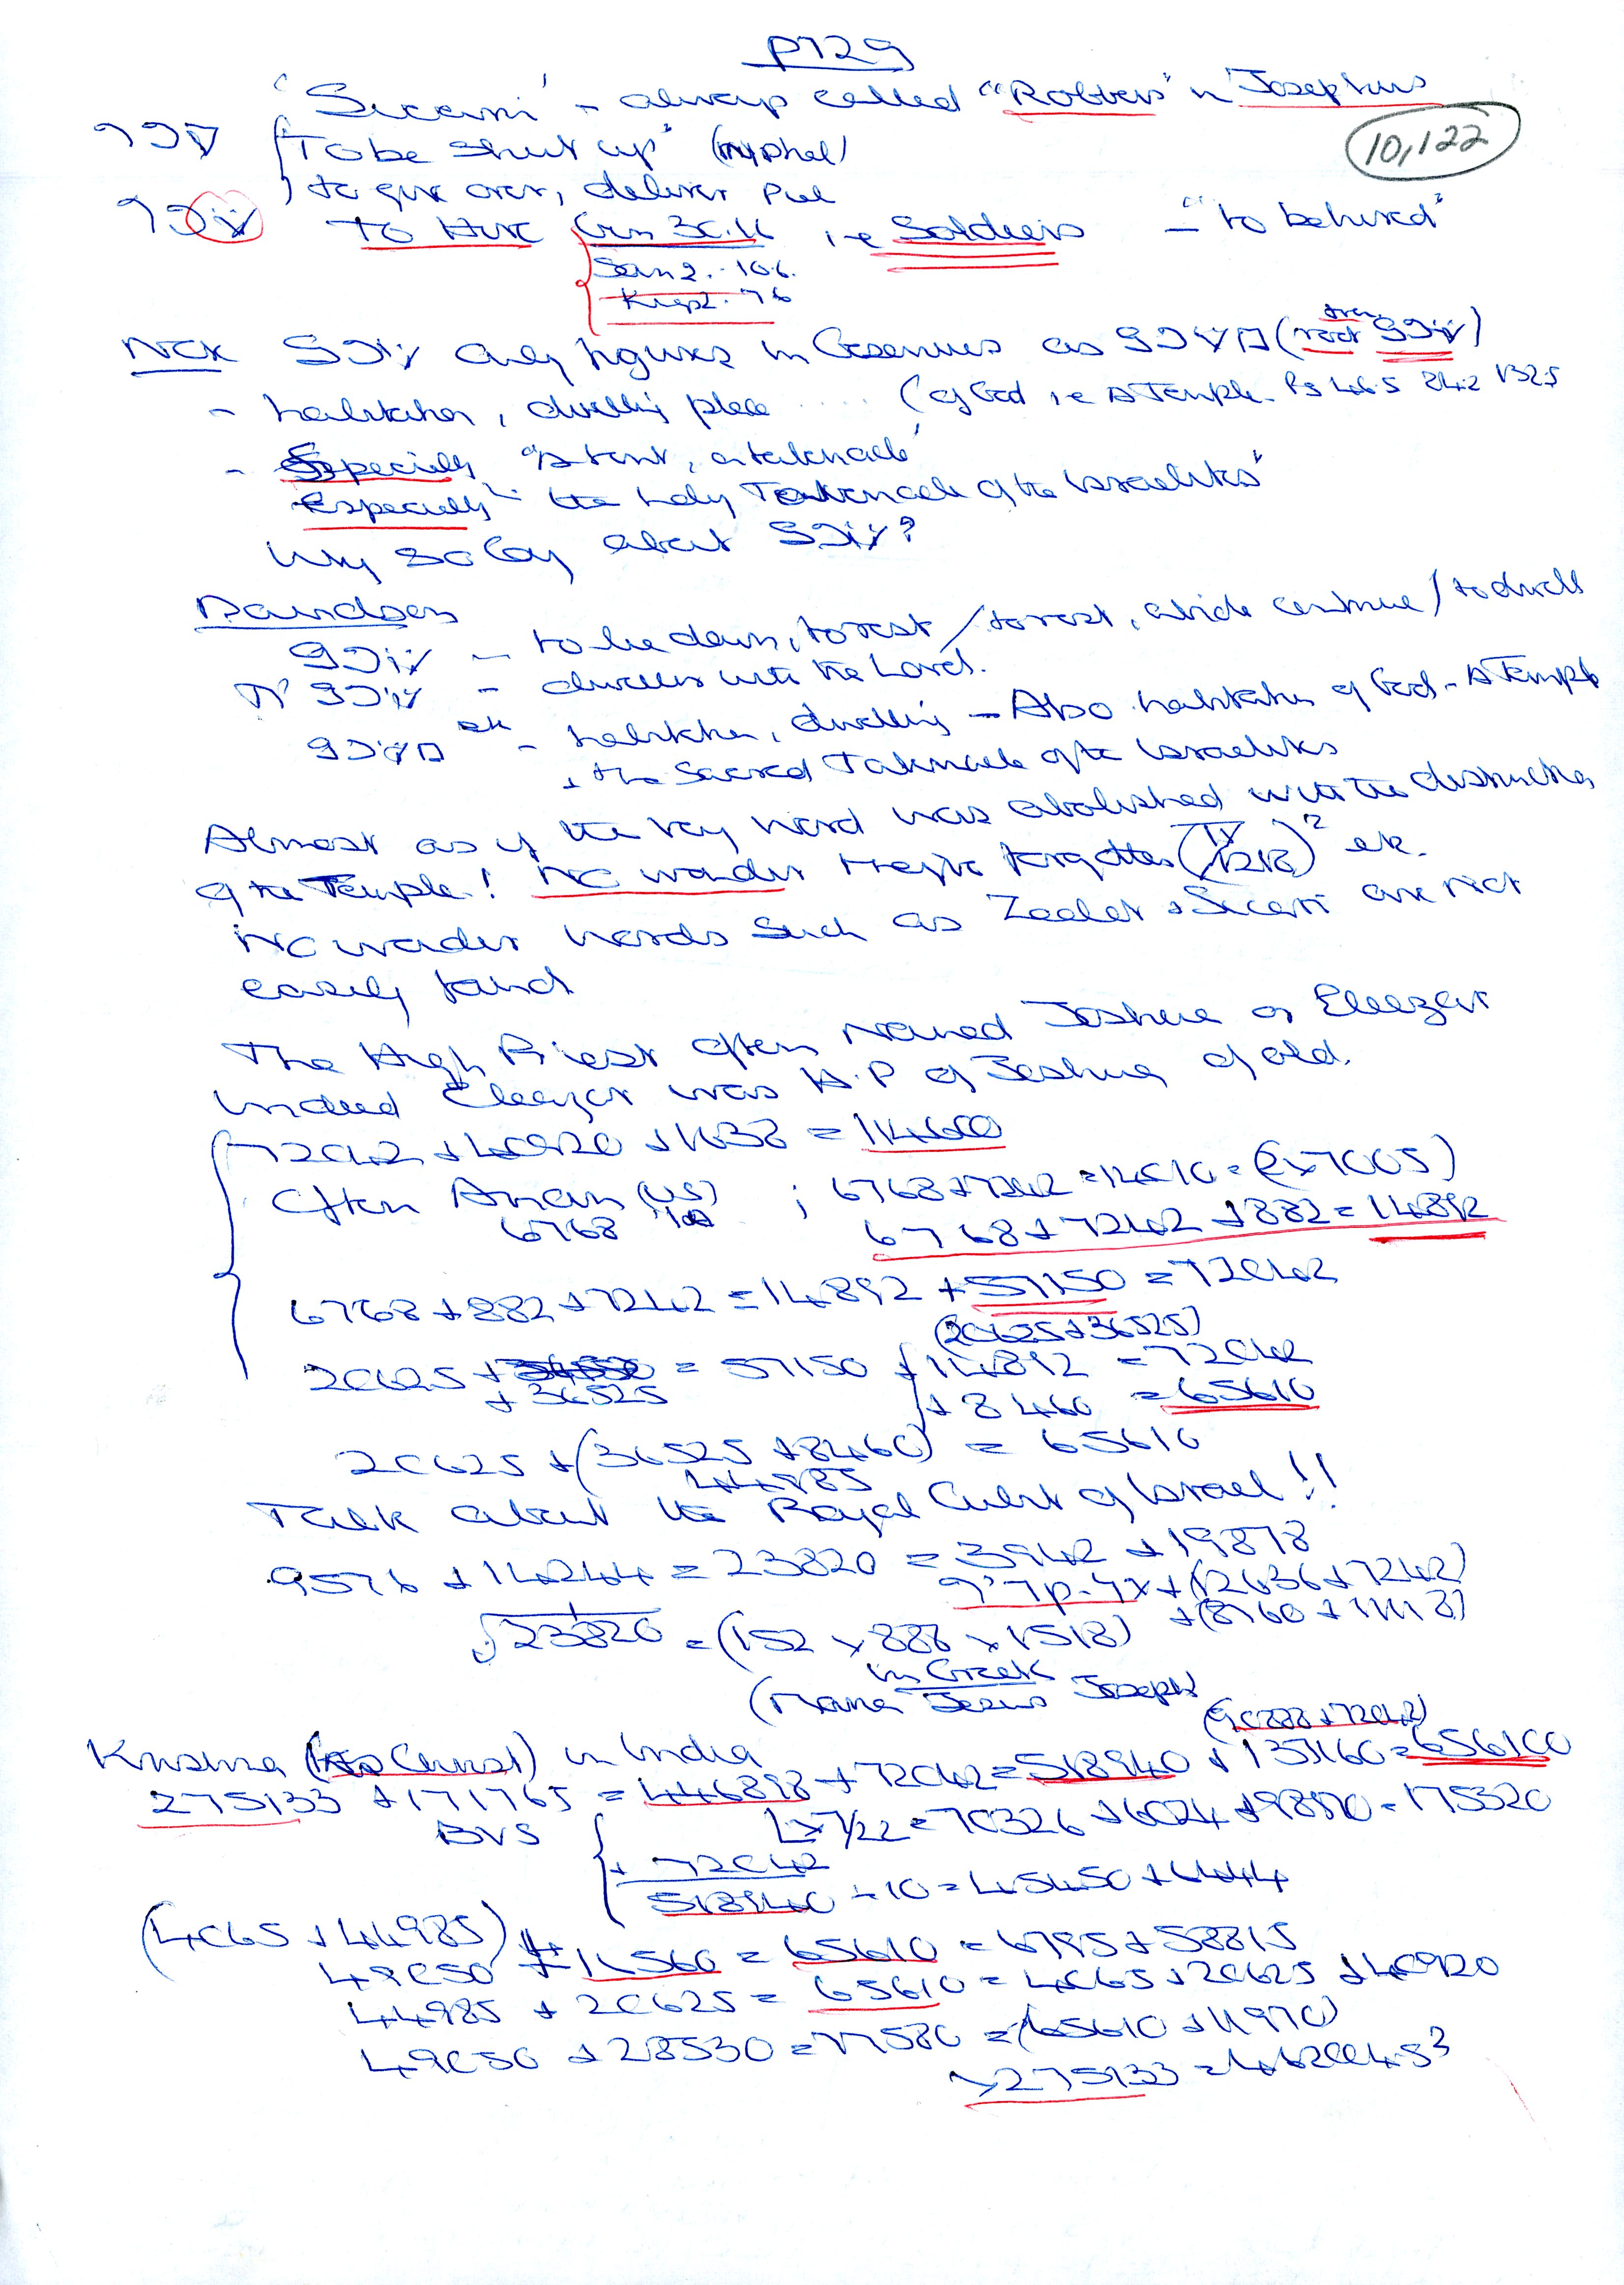 p729
'Sicarii' - always called "Robbers" in Josephus
10,122
סכר { "To be shut up" (niphal)
to give over, deliver Piel
שכר To Hire { Gen 30.16 i-e Soldiers - "to be hired"
Sam 2. 10.6.
Kings 2. 7 6
שכן only figures in Gesenius as משכן (root שכן)
- habitation, dwelling place .... (of God i.e A Temple. Ps 46.5 84.2 132.5
- Especially "A tent, a tabernacle"
Especially - the holy Tabernacle of the Israelites"
Why so coy about שכן?
Davidson
שכן - to lie down, to rest / to rest, abide continue / to dwell
שכן יה - dweller with the Lord.
משכן - habitation, dwelling - Also habitation of God - A Temple
+ the Sacred Tabernacle of the Israelites
Almost as if the very word was abolished with the destruction
of the Temple! No wonder they've forgotten etc.
No wonder words such as Zealot & Sicarii are not
easily found
The High Priest often Named Joshua or Eleazar
Indeed Eleazar was H.P of Joshua of old.
72042 + 40920 + 1638 = 114600
Often Anan (us) ; 6768 + 7242 = 14010 = (2x7005)
6768 6768 + 7242 + 882 = 14892
6768 + 882 + 7242 = 14892 + 57150 = 72042
(20625 + 36525)
20625 = 57150 { + 14892 = 72042
+ 36525 + 8460 = 65610
20625 + (36525 + 8460) = 65610
44985
Talk about the Royal Cubit of Israel!!
9576 + 14244 = 23820 = 3942 + 19878
+ (12636 + 7242)
√23820 = (152 x 888 x 1518) + (8760 + 11118)
in Greek
(Maria Jesus Joseph
(90888 + 72042)
Krishna in India
275133 + 171765 = 446898 + 72042 = 518940 + 137160 = 656100
BVS
x 7/22 = 70326 + 6024 + 98970 = 175320
+ 72042
518940 ÷ 10 = 45450 + 6444
(4065 + 44985)
49050 + 16560 = 65610 = 6795 + 58815
44985 + 20625 = 65610 = 4065 + 20625 + 40920
49050 + 28530 = 77580 = (65610 + 11970)
x 275133